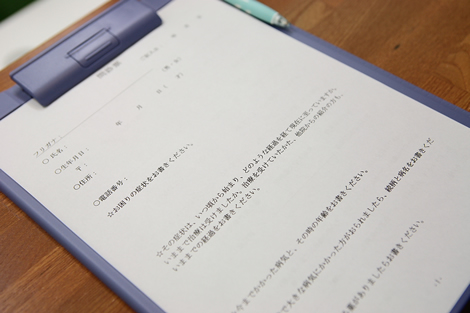 問診票
フリガナ：
○氏名：
○生年月日：　　　年　　月
〒：
○住所：
○電話番号：
☆お困りの症状をお書きください。
☆その症状は、いつ頃から始まり、どのような経過を経て現在に至っていますか。
いままで治療は受けましたか。治療を受けていたかた、他院からの紹介の方も、
いままでの経過をお書きください。
今までかかった病気と、その時の年齢をお書きください。
で大きな病気にかかった方がおられましたら、続柄と病名をお書きくだ
がありましたらお書きください。
-1-